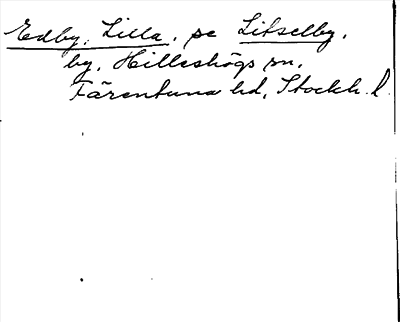 Edby, Lilla, se Litselby,
by, Hilleshögs sn,
Färentuna hd, Stockh. l.